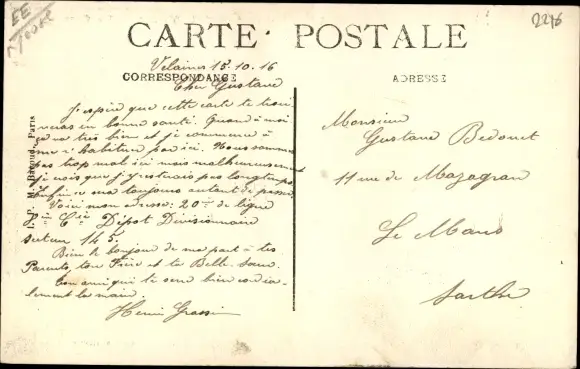 EE
2276
CARTE POSTALE
CORRESPONDANCE
ADRESSE
Velaines 15.10.16
Cher Gustave
J'espère que cette carte te trou
veras en bonne santé. Quand à moi
ça va très bien et je commence à
m'habituer par ici. Nous sommes
pas trop mal ici mais malheureusement
je crois que j'y serais pas longtemps
Enfin ça va toujours autant de passé
Voici mon adresse: 20me de ligne
Cie Dépot Divisionnaire
secteur 145.
Bien le bonjour de ma part à tes
Parents, ton Frère et ta Belle-Sœur.
Ton ami qui te serre bien cordia-
lement la main.
Henri
Monsieur
Gustave Bedouet
11 rue de Mazagran
Le Mans
Sarthe
Paris